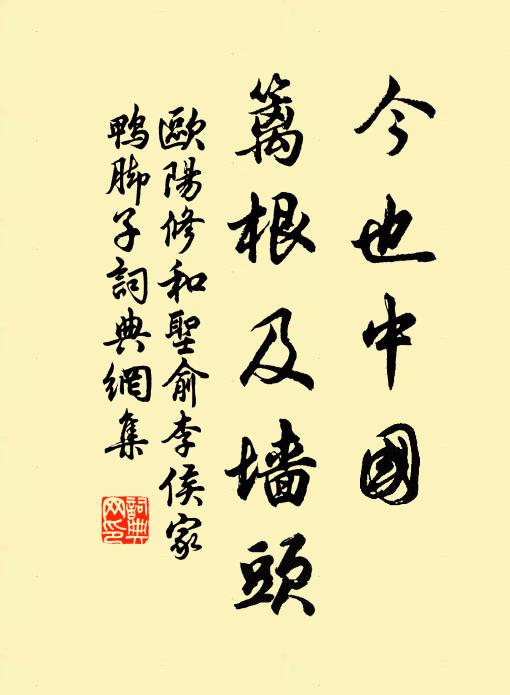 今也中國
籬根及墙頭
歐陽修和聖俞李侯家
鴨脚子詞典網集
詞典
网印